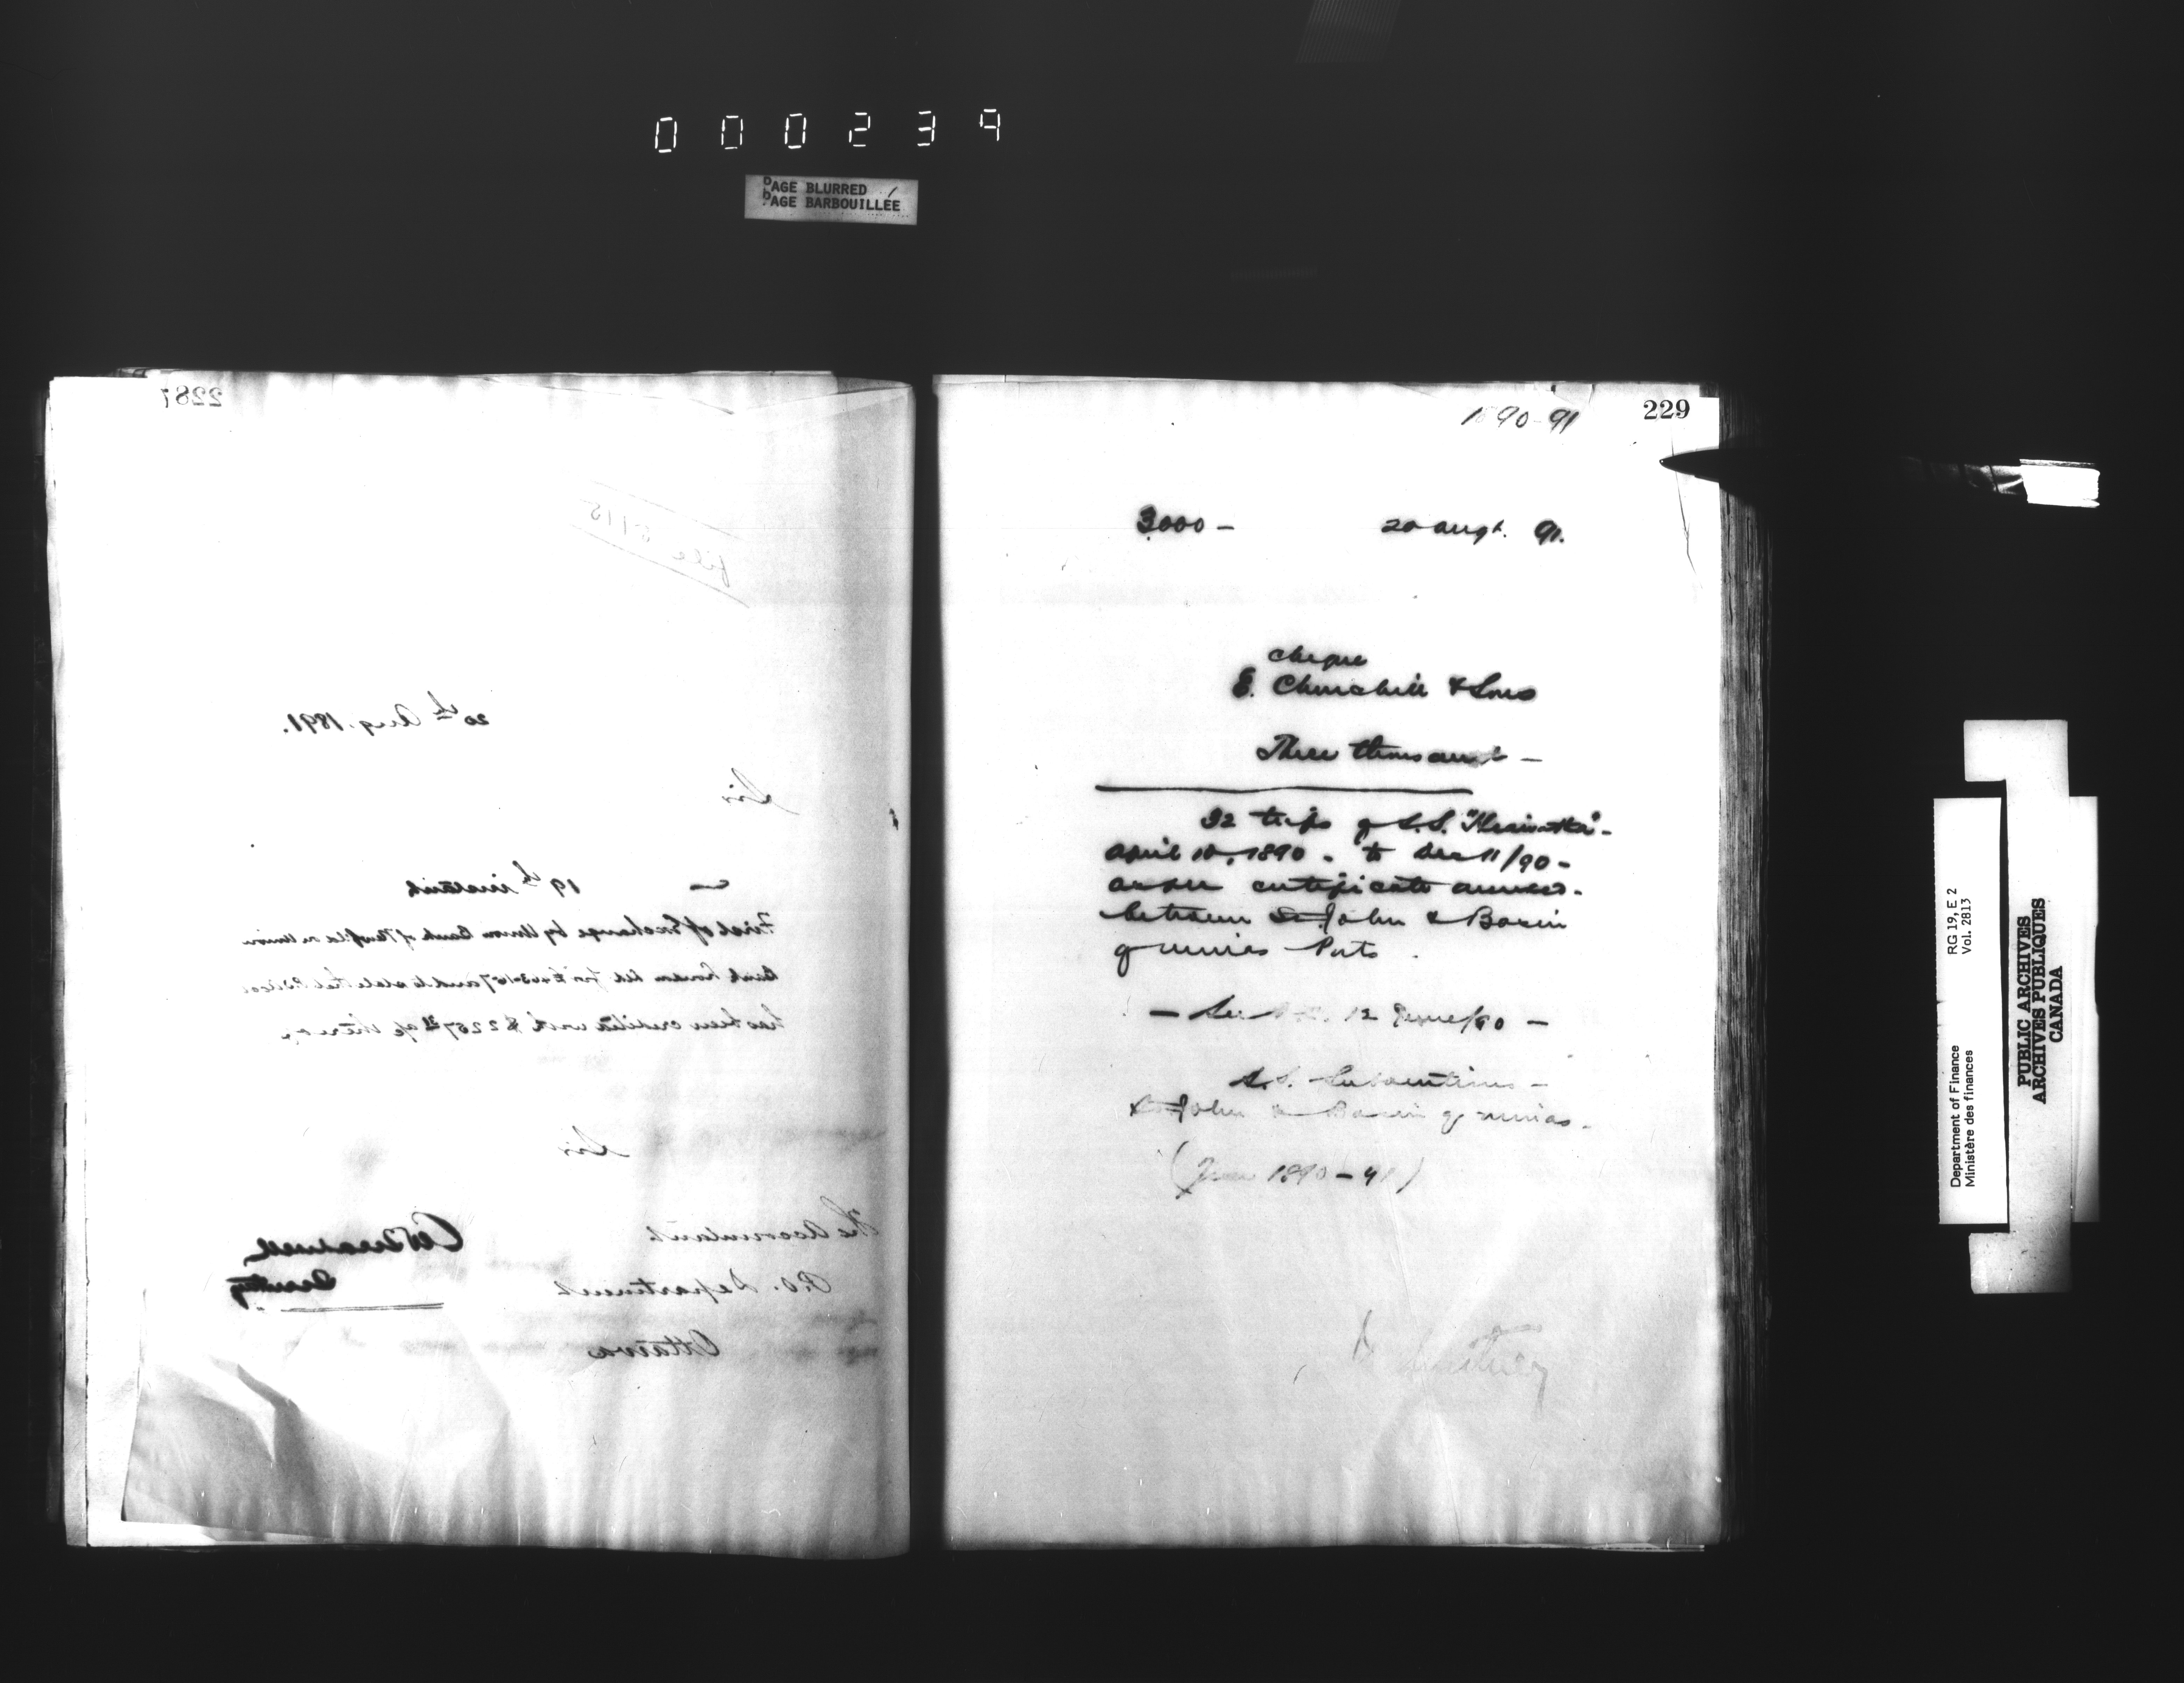 000239
PAGE BLURRED
PAGE BARBOUILLÉE
2287
file 5115
20th Aug. 1891.
Sir
19th instant
First of Exchange by Union Bank of Newfld on Union
Bank London and to state that
has been credited with $2267
Sir
The Accountant
P.O. Department
Ottawa
Deputy
229
1890-91
3000 -
20 Augt. 91.
cheque
E. Churchill & Sons
Three thousand -
32 trips of S.S. "Hiawatha" -
April 10, 1890 - to Dec 11/90 -
as per certificate annexed -
between St John & Basin
of minas Ports
12 June/90 -
S.S. Subventions -
St John & Basin of minas -
( 1890-91)
Department of Finance
Ministère des finances
RG 19, E 2
Vol. 2813
PUBLIC ARCHIVES
ARCHIVES PUBLIQUES
CANADA